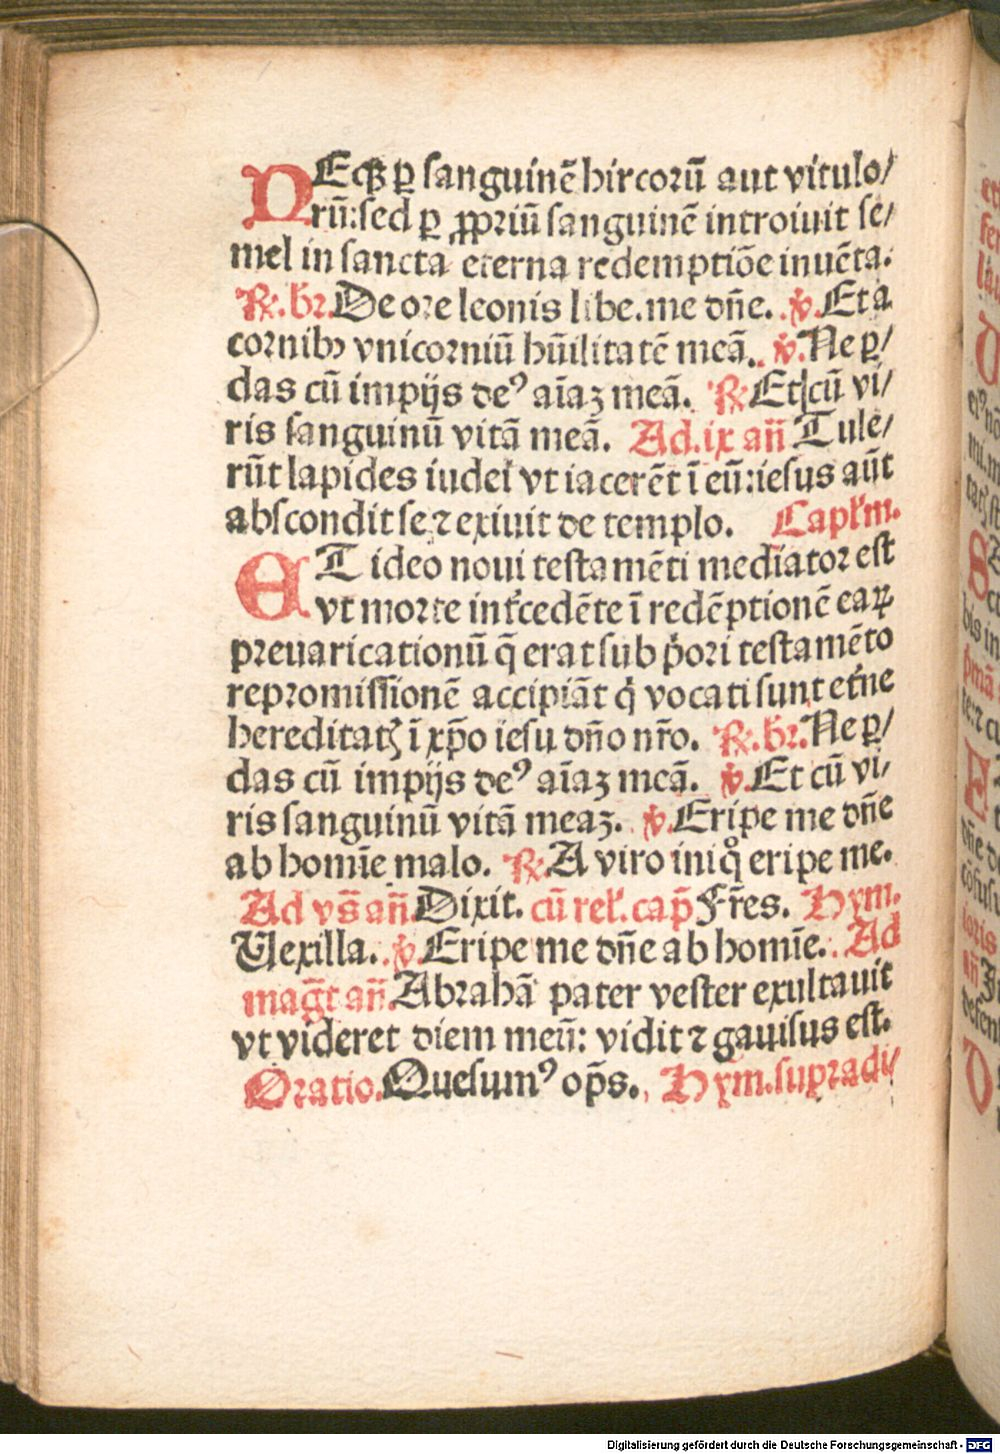 NEqꝫ ꝑ ſanguinē hircorū aut vitulo/
rū: ſed ꝑ ꝓpriū ſanguinē introiuit ſe/
mel in ſancta eterna redemptiōe inuēta.
℟. br̄. De ore leonis libe. me dn̄e. ℣. Et a
cornibꝰ vnicorniū hūilitatē meā. ℣. Ne ꝑ/
das cū impijs deꝰ aīaꝫ meā. ℟ Et cū vi/
ris ſanguinū vitā meā. Ad. ix an̄ Tule/
rūt lapides iudei vt iacerēt ī eū: ieſus aūt
abſcondit ſe ⁊ exiuit de templo. Capl'm.
ET ideo noui teſtamēti mediator eſt
vt morte int̄cedēte ī redēptionē eaꝝ
preuaricationū q̄ erat ſub p̄ori teſtamēto
repromiſſionē accipiāt q' vocati ſunt et'ne
hereditatꝭ ī xp̄o ieſu dn̄o nr̄o. ℟. br̄. Ne ꝑ/
das cū impijs deꝰ aīaꝫ meā. ℣. Et cū vi/
ris ſanguinū vitā meaꝫ. ℣. Eripe me dn̄e
ab homīe malo. ℟. A viro iniqͦ eripe me.
Ad vs̄ an̄. Dixit. cū rel'. cap̄ Fr̄es. Hym.
Vexilla. ℣. Eripe me dn̄e ab homīe. Ad
maḡt an̄. Abrahā pater veſter exultauit
vt videret diem meū: vidit ⁊ gauiſus eſt.
Oratio. Queſumꝰ op̄s. Hym. ſupradi/
Digitalisierung gefördert durch die Deutsche Forschungsgemeinschaft - DFG